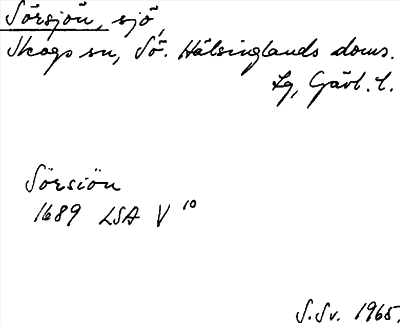 Sörsjön, sjö,
Skogs sn, Sö. Hälsinglands doms.
Lg, Gävl. l.
Sörsiön
1689 LSA V 10
S.Sv. 1965.